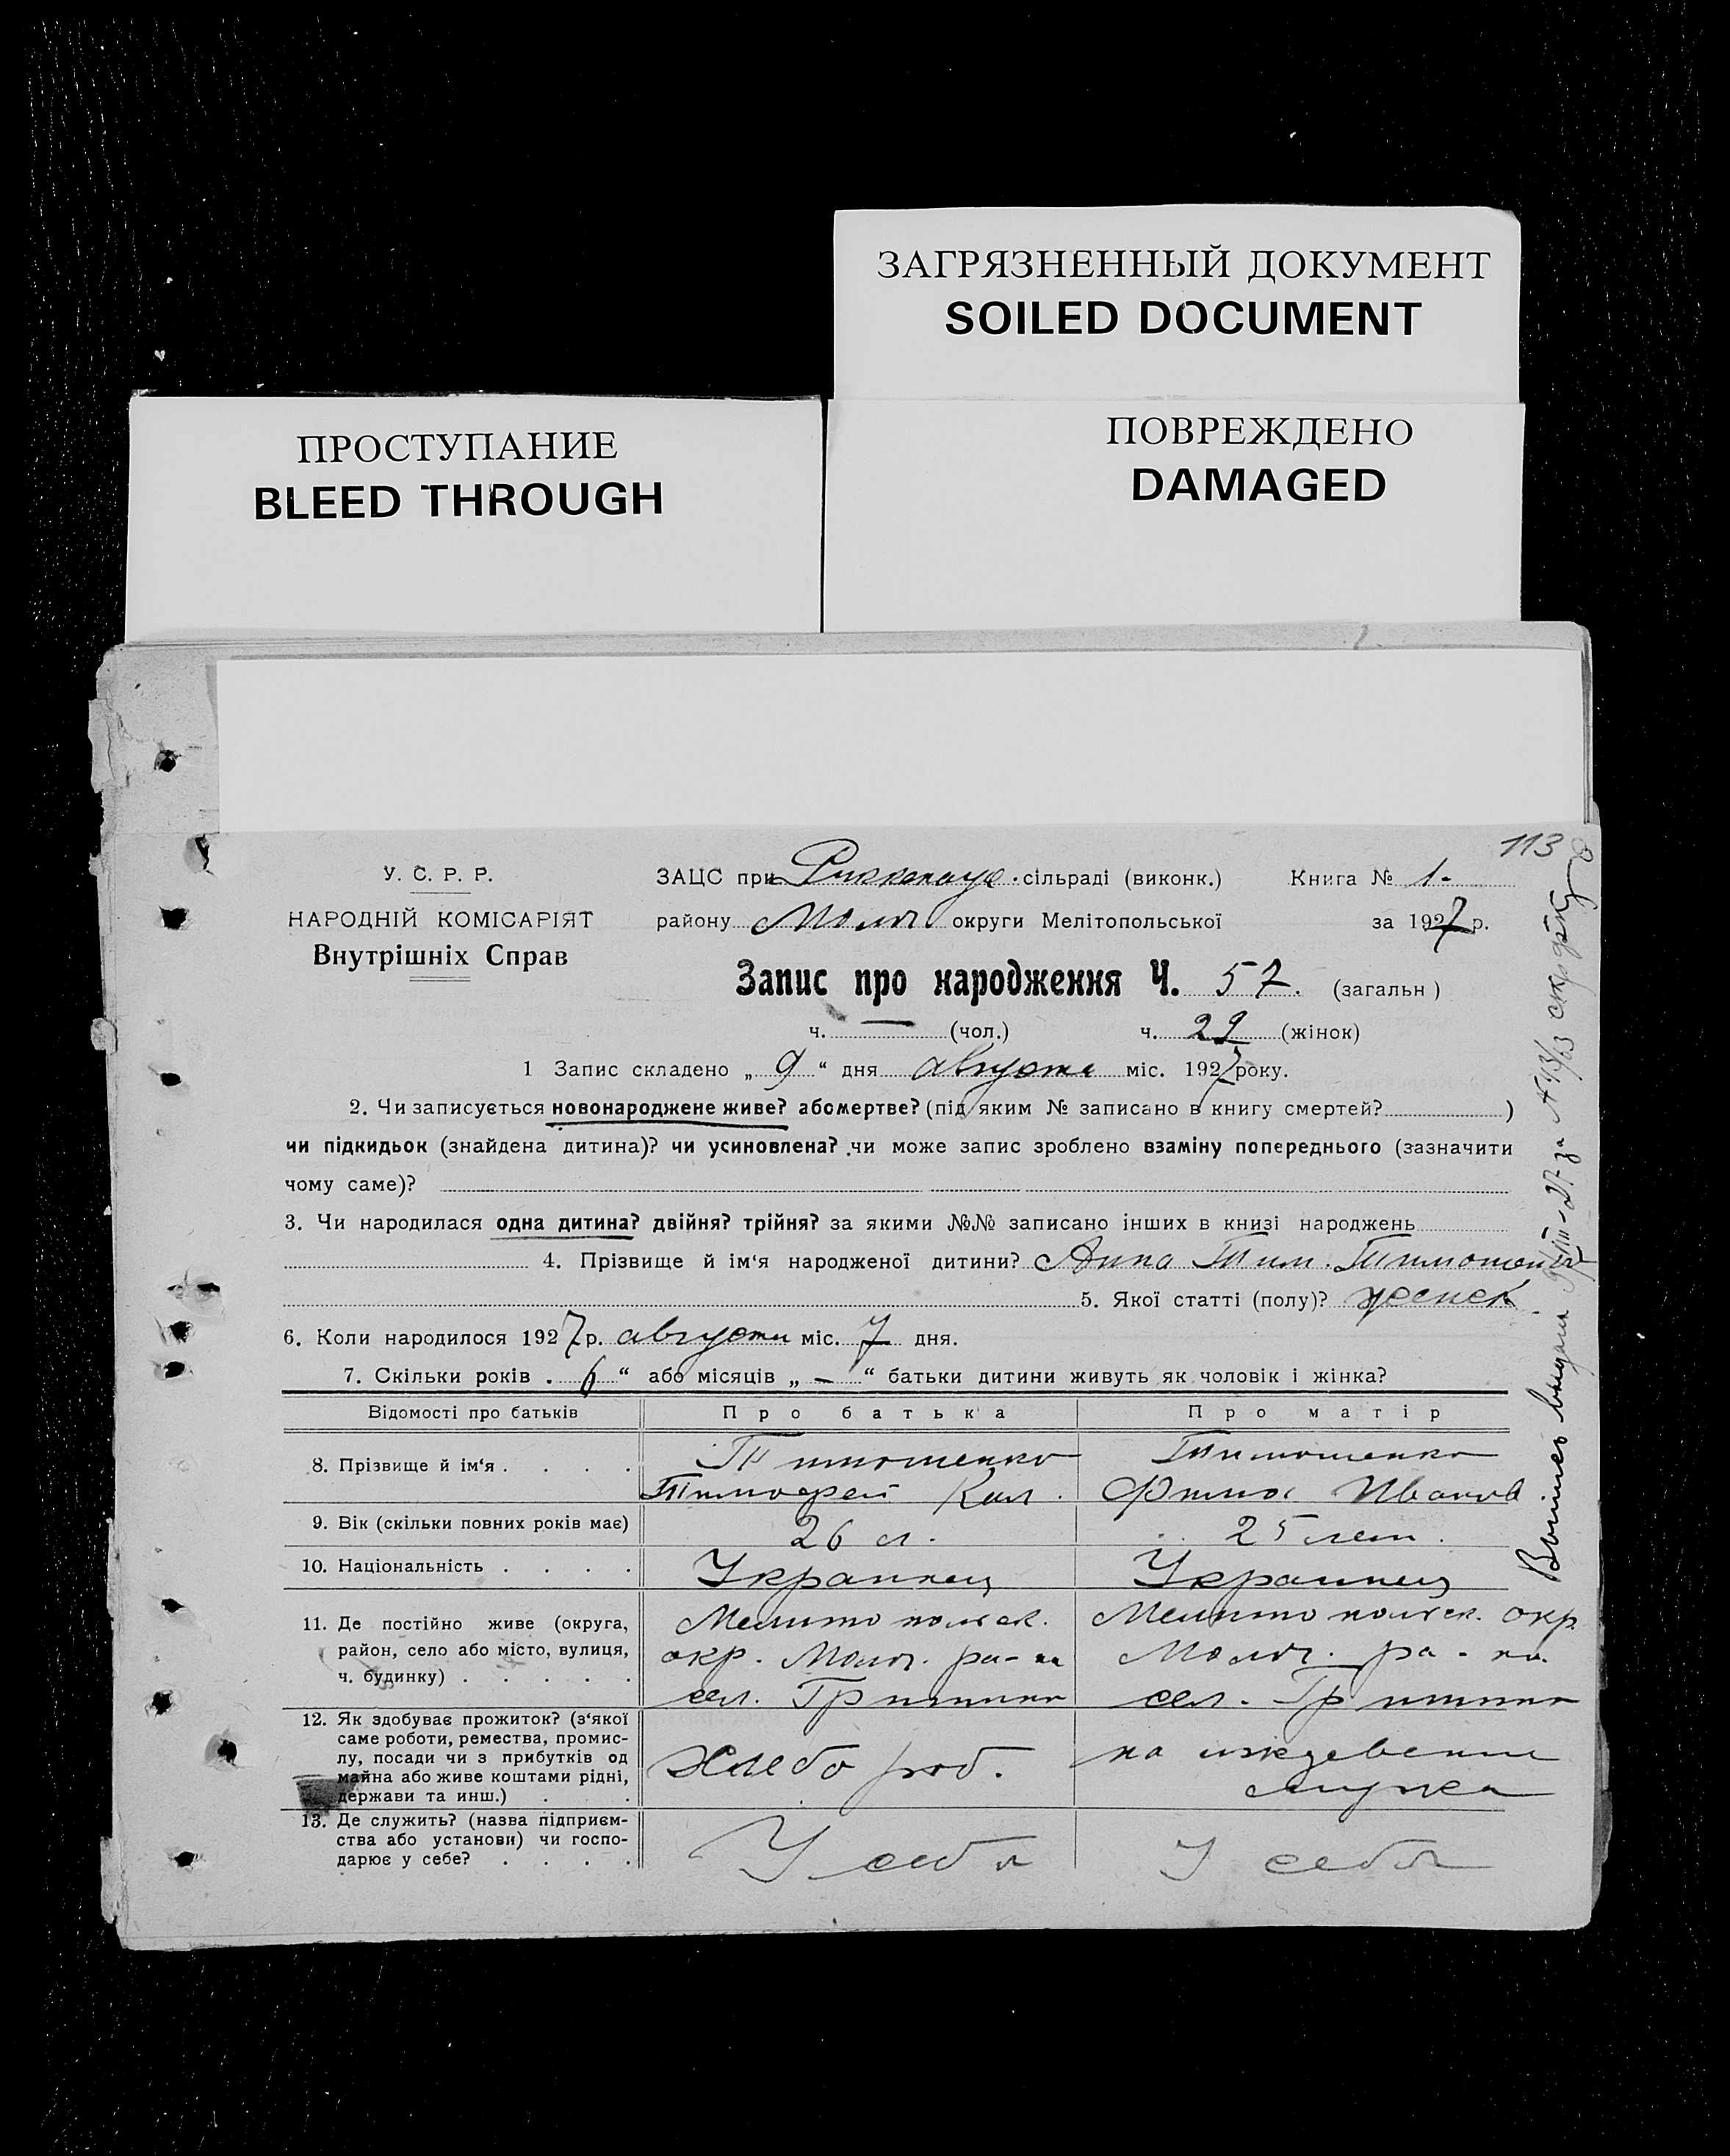 ЗАГРЯЗНЕННЫЙ ДОКУМЕНТ
SOILED DOCUMENT
ПРОСТУПАНИЕ
BLEED THROUGH
ПОВРЕЖДЕНО
DAMAGED
113
У. С. Р. Р.
НАРОДНІЙ КОМІСАРІЯТ
Внутрішніх Справ
ЗАЦС при сільраді (виконк.) Книга № 1-
району Молоч округи Мелітопольської за 1927 р.
Запис про народження Ч. 57. (загальн)
ч. — (чол.) ч. 29 (жінок)
1 Запис складено „ 9 “ дня августа міс. 1927 року.
2. Чи записується новонароджене живе? або мертве? (під яким № записано в книгу смертей? )
чи підкидьок (знайдена дитина)? чи усиновлена? чи може запис зроблено взаміну попереднього (зазначити
чому саме)?
3. Чи народилася одна дитина? двійня? трійня? за якими №№ записано інших в книзі народжень
4. Прізвище й ім‘я народженої дитини? Анна Тим. Тимошенко
5. Якої статті (полу)? женск.
6. Коли народилося 1927 р. августа міс. 7 дня.
7. Скільки років . 6 “ або місяців „ — “ батьки дитини живуть як чоловік і жінка?
Відомості про батьків Про батька Про матір
8. Прізвище й ім‘я . . . . Тимошенко Тимофей Тимошенко Иванов
9. Вік (скільки повних років має) 26 л. 25 лет.
10. Національність . . . . Украинец Украинец
11. Де постійно живе (округа,
район, село або місто, вулиця,
ч. будинку) . . . . .
Мелитопольск.
окр. Молоч. ра-на
сел.
Мелитопольск. окр.
Молоч. ра-на.
сел.
12. Як здобуває прожиток? (з‘якої
саме роботи, ремества, промис-
лу, посади чи з прибутків од
майна або живе коштами рідні,
держави та инш.) . .
Хлебороб.
на иждевении
мужа
13. Де служить? (назва підприєм-
ства або установи) чи госпо-
дарює у себе? . . . .
У себя
У себя